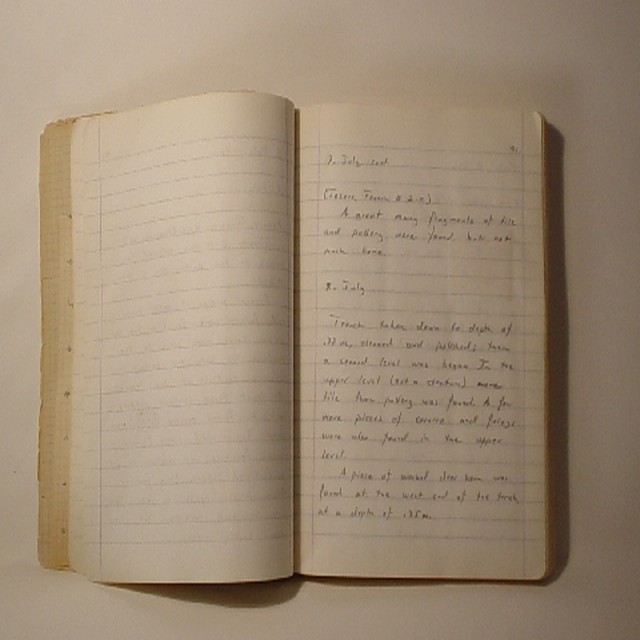 7. July cont.
A great many fragments of tile
and pottery were found but not
much bone.
8. July
Trench taken down to depth of
.32 m, cleaned and polished; then
a second level was begun In the
upper level (not a stratum) more
tile than pottery was found. A few
more pieces of and
were also found in the upper
level.
A piece of worked deer horn was
found at the west end of the trench
at a depth of .35 m.